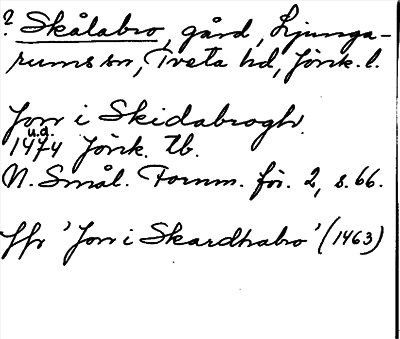 ? Skålabro, gård, Ljunga-
rums sn, Tveta hd, Jönk. l.
Jon i Skidabrogh
u.d.
1474 Jönk. tb.
N. Smål. Fornm. för. 2, s. 66.
Jfr 'Jon i Skardhabro' (1463)